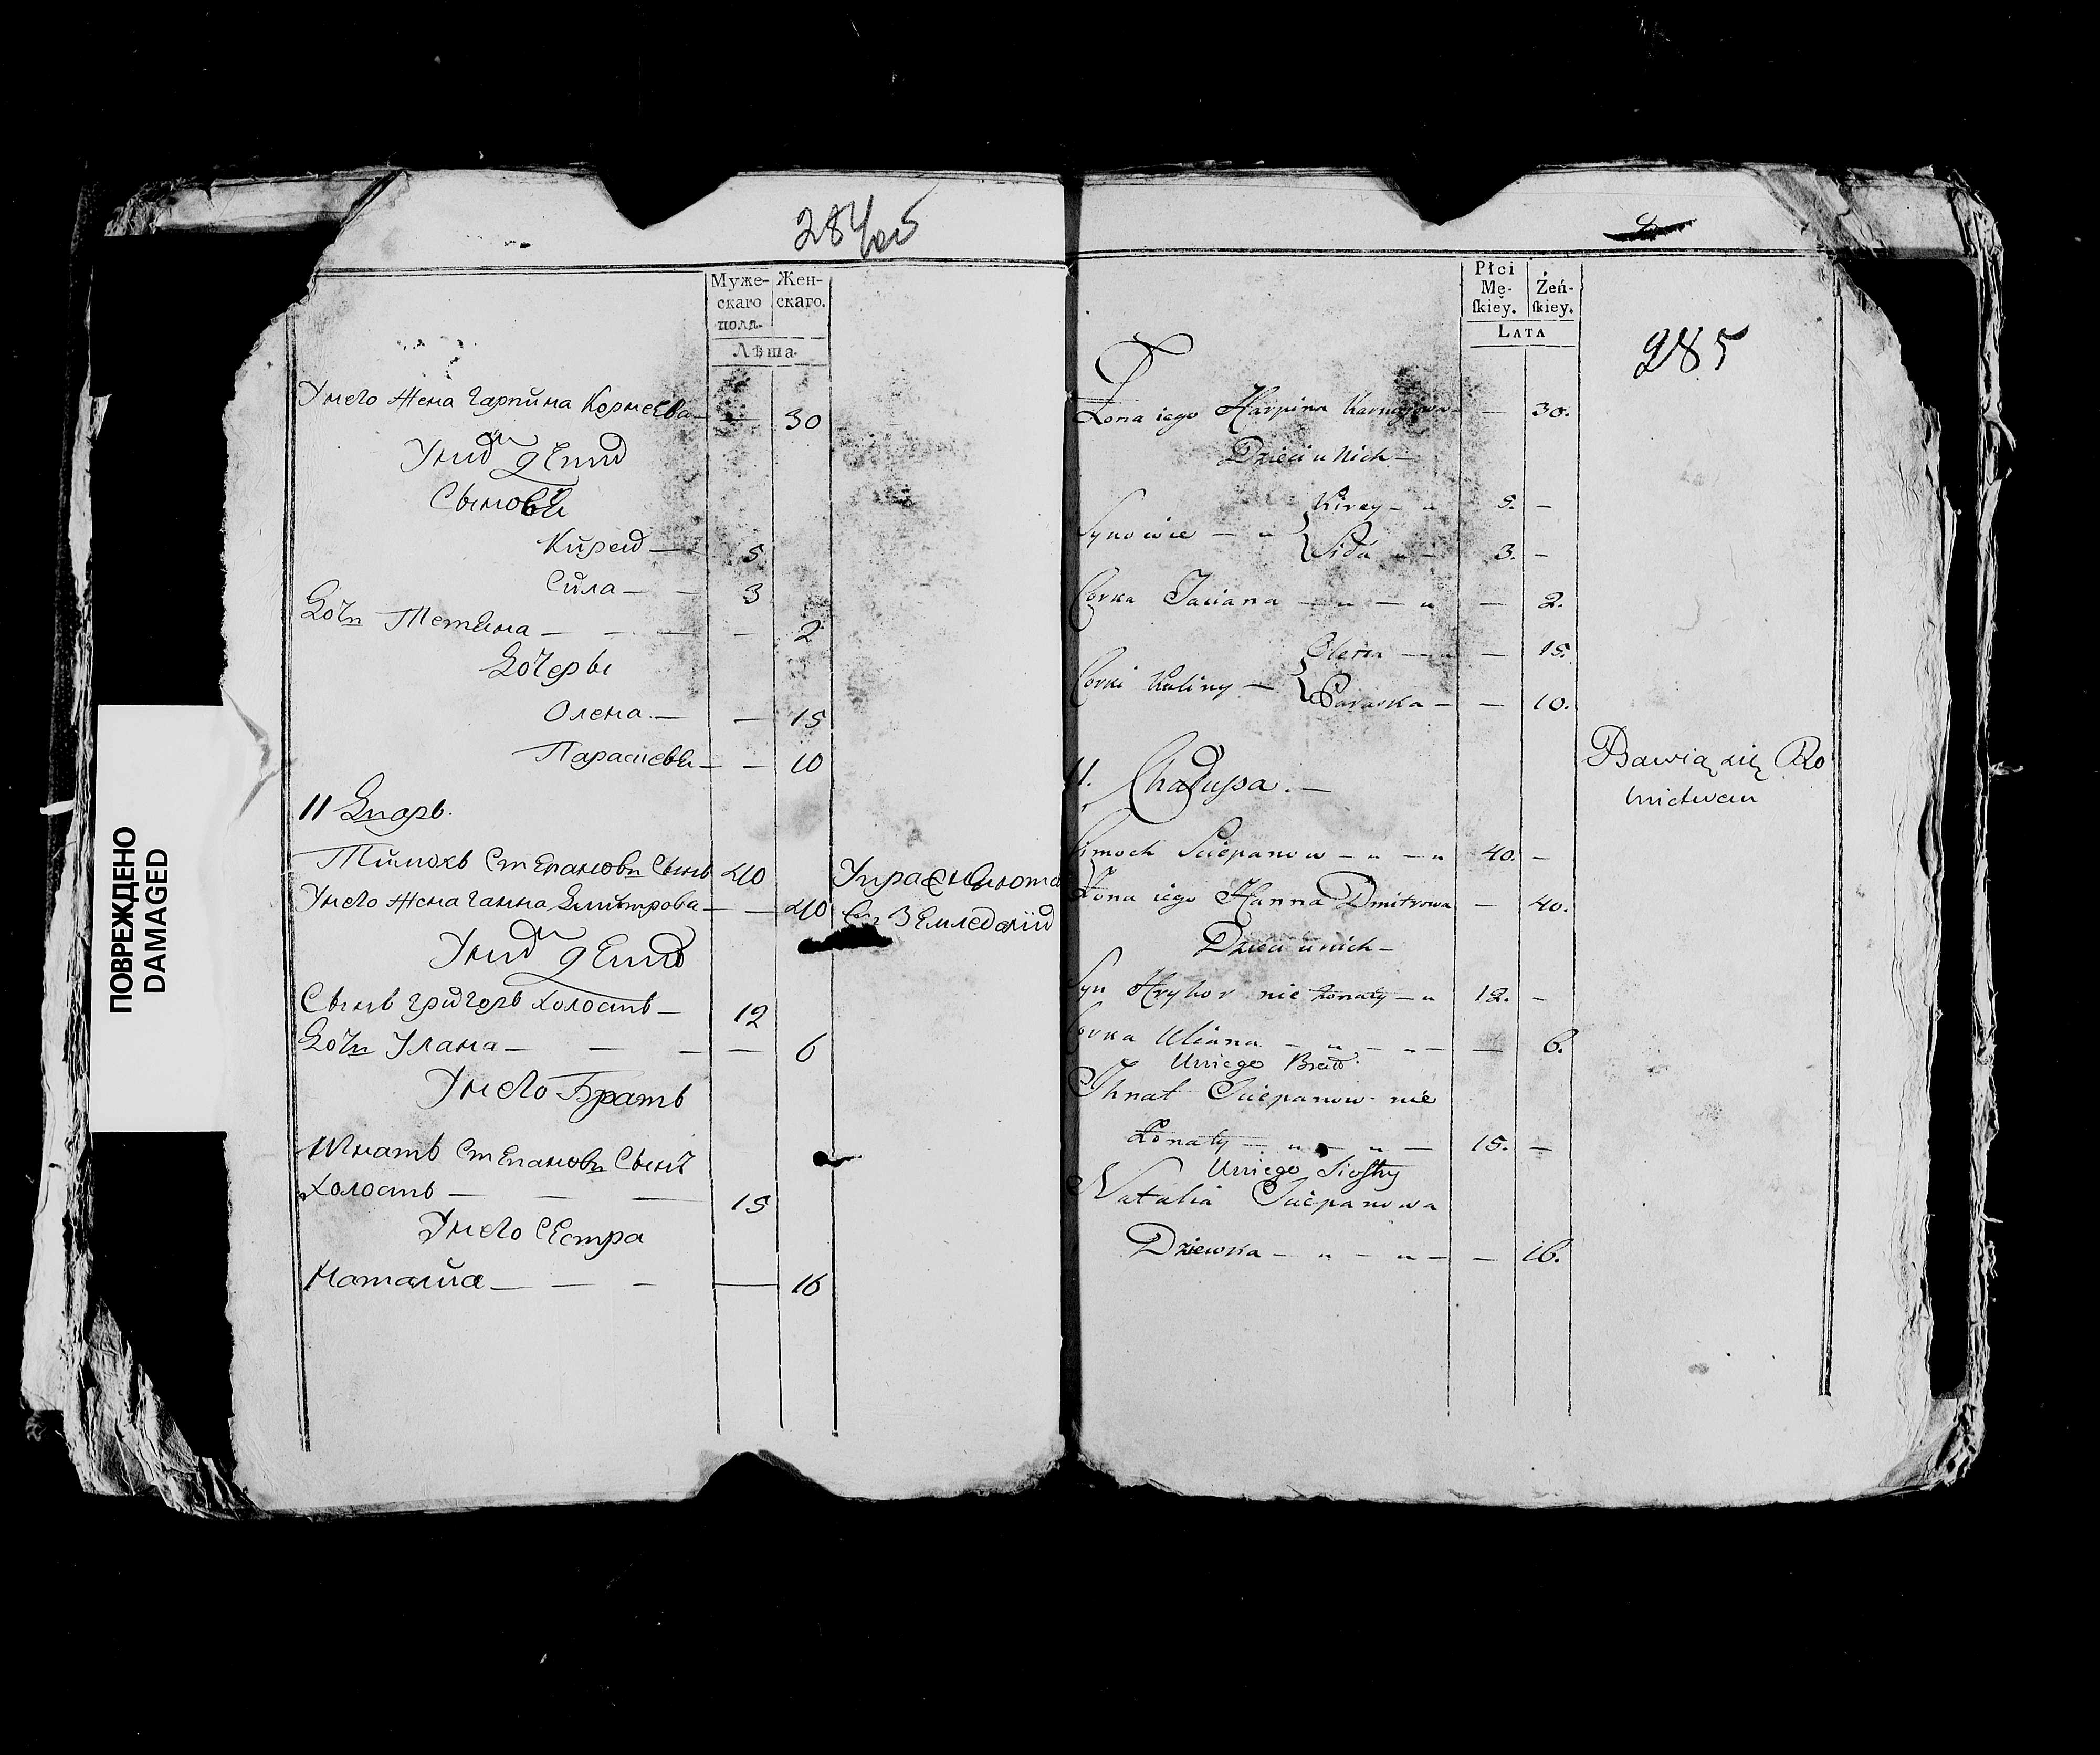 ПОВРЕЖДЕНО
DAMAGED
284/об
Муже-
скаго
пола.
Жен-
скаго.
Лѣта.
Унего Жена Гарпина Корнеева — 30
Унихъ дети
Сынове
Кирей — 5
Сила — — 3
Дочь Тетяна — — — — 2
Дочеры
Олена — — 15
Параснева — — 10
11 Дворъ.
Тимохъ Степановъ Сынъ 40
Унего Жена Ганна Дмитрова — — 40
Унихъ дети
Сынъ Григоръ холостъ — 12
Дочь Улана — — — — 6
Унего Братъ
Игнатъ Степановъ Сынъ
Холостъ — — — 15
Унего Сестра
Наталия — — — — 16
Упражняюта
Въ Земледелии
Płci
Mę-
skiéy.
Żeń-
skiey.
LATA
285
Żona iego Harpina Karneiowa — — 30.
Dzieci u Nich —
Synowie — „
Kirey — „ 5. —
Siła „ — 3. —
Corka Taciana — „ — „ — 2.
Corki
Olena — „ — 15.
Paraska — — 10.
11. Chałupa. —
Bawią się Ro
lnictwem
Cimoch Sciepanow — „ — „ 40. —
Żona iego Hanna Dmitrowa — 40.
Dzieci u nich —
Syn Hryhor nie żonaty — „ 12. —
Corka Uliana — „ — „ — — 6.
U niego Brat
Ihnat Sciepanow nie
Żonaty — „ — „ — 15. —
U niego Siostry
Natalia Sciepanowa
Dziewka — „ — „ — — 16.